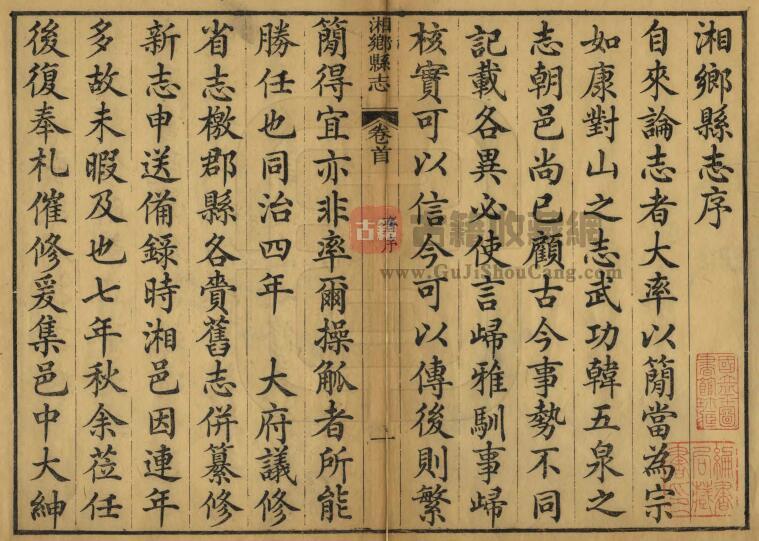 湘鄉縣志序
自來論志者大率以簡當為宗
如康對山之志武功韓五泉之
志朝邑尚已顧古今事勢不同
記載各異必使言歸雅馴事歸
核實可以信今可以傳後則繁
湘鄉縣志
卷首
序
一
簡得宜亦非率爾操觚者所能
勝任也同治四年 大府議修
省志檄郡縣各賫舊志併纂修
新志申送備錄時湘邑因連年
多故未暇及也七年秋余莅任
後復奉札催修爰集邑中大紳
古籍
古籍收藏網
www.GuJiShouCang.com